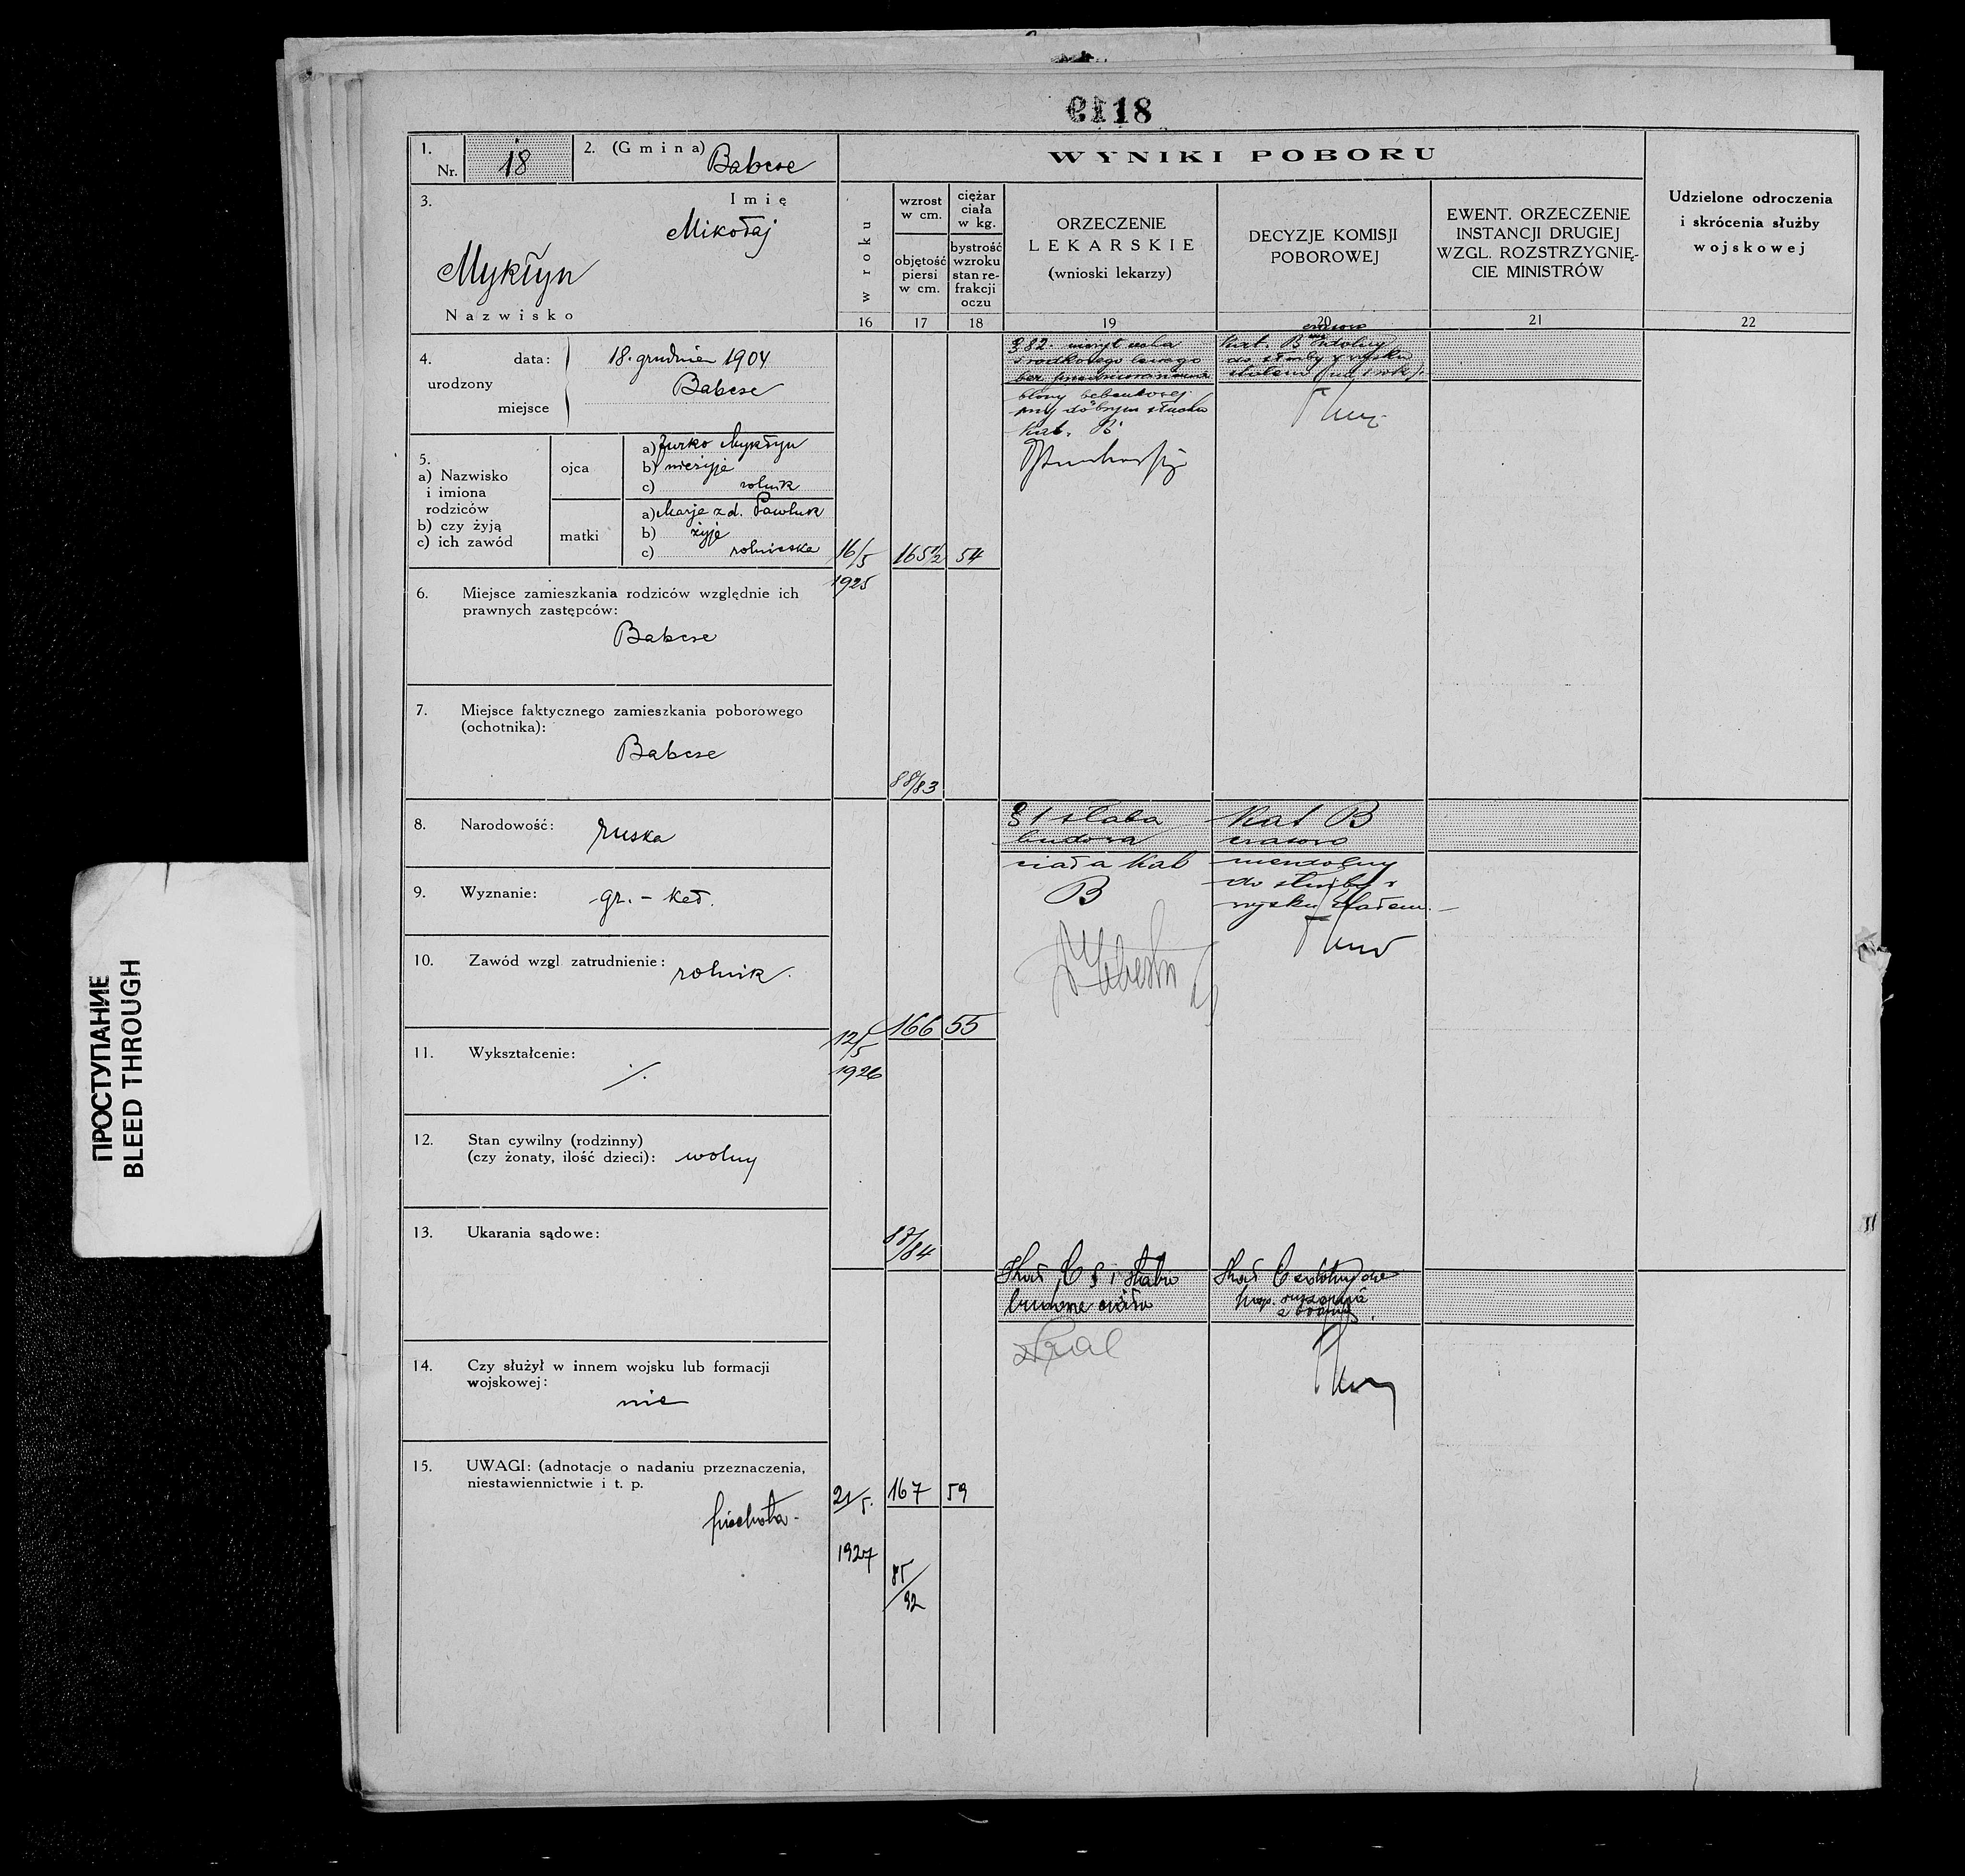 18
1.
Nr. 18
2. (Gmina) Babcze
3.
Imię
Mikołaj
Mykłyn
Nazwisko
4.
urodzony
data: 18. grudnia 1904
miejsce Babcze
5.
a) Nazwisko
i imiona
rodziców
b) czy żyją
c) ich zawód
ojca
a) Jurko Mykłyn
b) nieżyje
c) rolnik
matki
a) Marja z d. Pawluk
b) żyje
c) rolniczka
6. Miejsce zamieszkania rodziców względnie ich
prawnych zastępców:
Babcze
7. Miejsce faktycznego zamieszkania poborowego
(ochotnika):
Babcze
8. Narodowość: ruska
9. Wyznanie: gr. - kat.
10. Zawód wzgl. zatrudnienie: rolnik.
11. Wykształcenie:
./.
12. Stan cywilny (rodzinny)
(czy żonaty, ilość dzieci): wolny
13. Ukarania sądowe:
14. Czy służył w innem wojsku lub formacji
wojskowej:
nie
15. UWAGI: (adnotacje o nadaniu przeznaczenia,
niestawiennictwie i t. p.
piechota -
WYNIKI POBORU
w roku
16
wzrost
w cm.
objętość
piersi
w cm.
17
ciężar
ciała
w kg.
bystrość
wzroku
stan re-
frakcji
oczu
18
ORZECZENIE
LEKARSKIE
(wnioski lekarzy)
19
DECYZJE KOMISJI
POBOROWEJ
20
EWENT. ORZECZENIE
INSTANCJI DRUGIEJ
WZGL. ROZSTRZYGNIĘ-
CIE MINISTRÓW
21
Udzielone odroczenia
i skrócenia służby
wojskowej
22
16/5
1925
165 1/2
54
88/83
§ 82. nieżyt ucha
środkowego lewego
bez
błony bębenkowej
przy dobrym słuchu
kat. B
czasowo
Kat. B niezdolny
do służby w wojsku
stałem (na 1 rok).
12/5
1926
166
55
/84
§ 1 słaba
budowa
ciała Kat
B
Kat B
czasowo
niezdolny
do służby w
wojsku stałem. -
21/5.
1927
167
59
85/92
Kat C § 1 słaba
budowa ciała
Kat C zdolny do
posp. ruszenia
z bronią.
ПРОСТУПАНИЕ
BLEED THROUGH